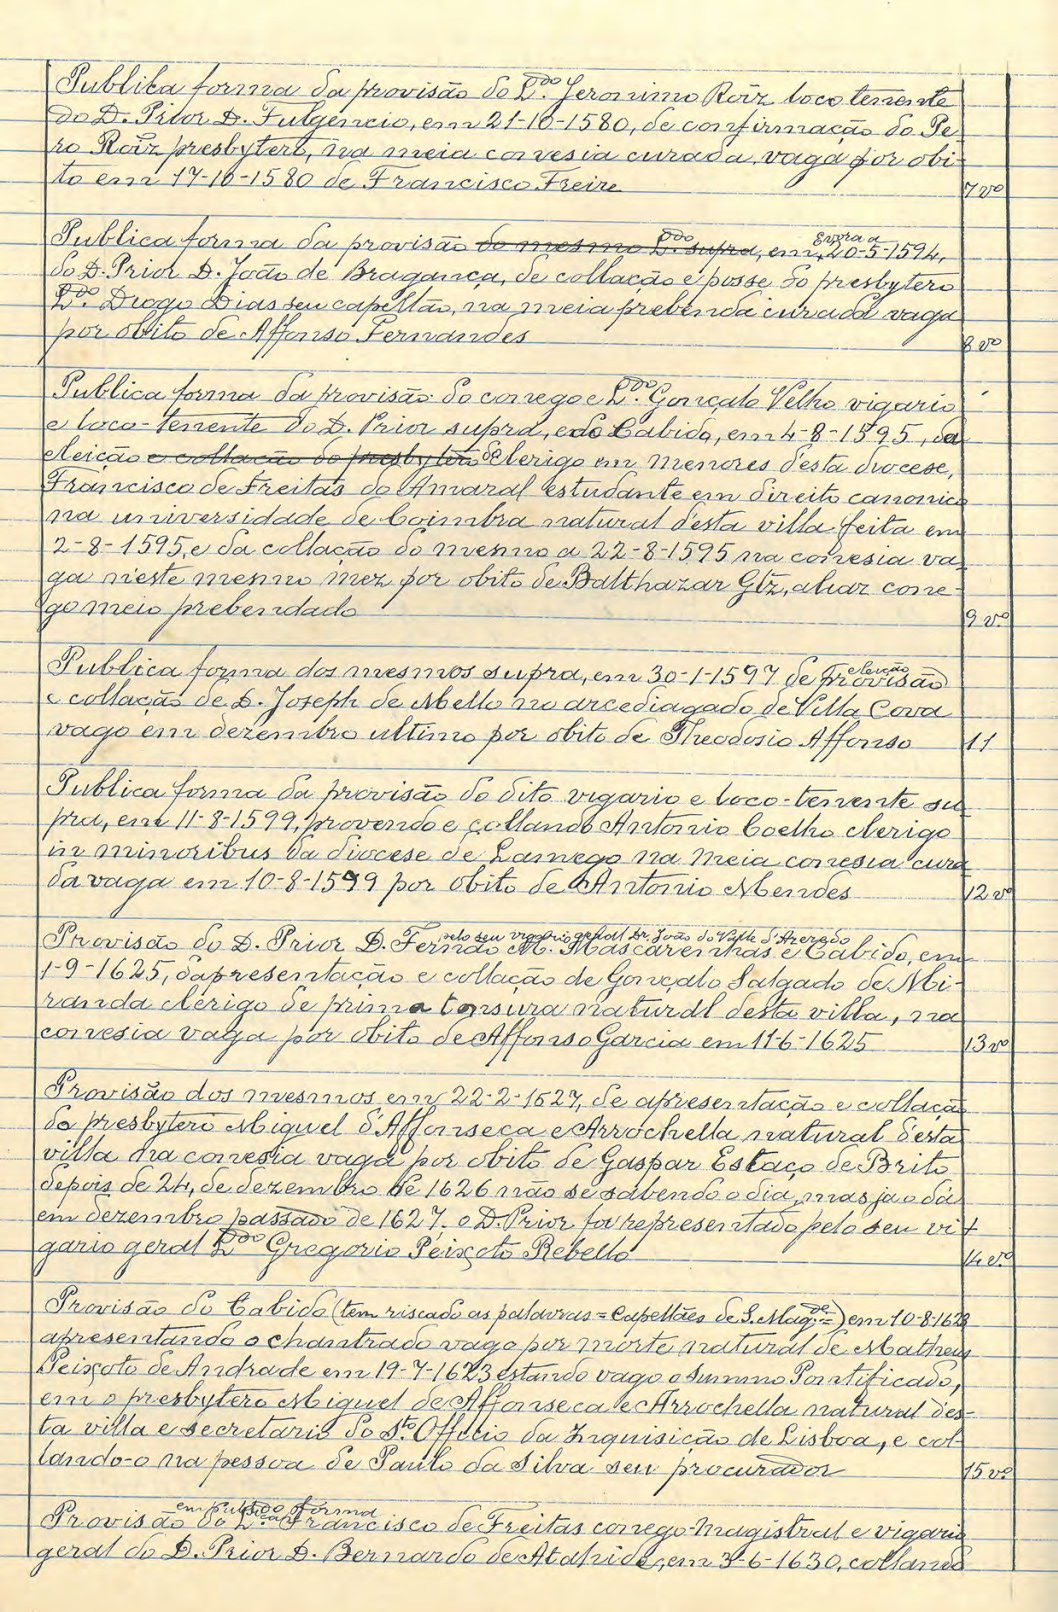 Publica forma da provisão do L.do Jeronimo Roiz loco tenente
do D. Prior D. Fulgencio, em 21-10-1580, de confirmação do Pe-
ro Roiz presbytero, na meia conesia curada, vaga por obi-
to em 17-10-1580 de Francisco Freire 7 vº
Publica forma da provisão do mesmo L.do supra, em, Evora a 20-5-1594,
do D. Prior D. João de Bragança, de collação e posse do presbytero
L.do Diogo Dias seu capellão, na meia prebenda curada vaga
por obito de Affonso Fernandes 8 vº
Publica forma da provisão do conego e L.do Gonçalo Velho vigario
e loco-tenente do D. Prior supra, e do Cabido, em 4-8-1595, da
eleição e collação do presbytero de clerigo em menores d'esta diocese,
Francisco de Freitas do Amaral estudante em direito canonico
na universidade de Coimbra natural d'esta villa feita em
2-8-1595, e da collação do mesmo a 22-8-1595 na conesia va-
ga n'este mesmo mez por obito de Balthazar Glz, aliaz cone-
go meio prebendado 9 vº
Publica forma dos mesmos supra, em 30-1-1597 de eleição provisão
e collação de D. Joseph de Mello no arcediagado de Villa Cova
vago em dezembro ultimo por obito de Theodosio Affonso 11
Publica forma da provisão do dito vigario e loco-tenente su-
pra, em 11-8-1599, provendo e collando Antonio Coelho clerigo
in minoribus da diocese de Lamego na meia conesia cura
da vaga em 10-8-1599 por obito de Antonio Mendes 12 vº
pelo seu vigario geral Dr. João do Valle d'Azevedo
Provisão do D. Prior D. Fernão M. Mascarenhas e Cabido, em
1-9-1625, d'apresentação e collação de Gonçalo Salgado de Mi-
randa clerigo de prima tonsura natural desta villa, na
conesia vaga por obito de Affonso Garcia em 11-6-1625 13 vº
Provisão dos mesmos em 22-2-1627, de apresentação e collação
do presbytero Miguel d'Affonseca e Arrochella natural d'esta
villa na conesia vaga por obito de Gaspar Estaço de Brito
depois de 24, de dezembro de 1626 não se sabendo o dia, mas ja o dá
em dezembro passado de 1627. o D. Prior foi representado pelo seu vi +
gario geral L.do Gregorio Peixoto Rebello 14 vº
Provisão do Cabido (tem riscado as palavras = Capellães de S. Mag.de =) em 10-8-1623
apresentando o chantrado vago por morte natural de Matheus
Peixoto de Andrade em 19-7-1623 estando vago o Summo Pontificado,
em o presbytero Miguel de Affonseca e Arrochella natural d'es-
ta villa e secretario do S.to Officio da Inquisição de Lisboa, e col-
lando-o na pessoa de Paulo da Silva seu procurador 15 vº
em publica forma
Provisão do L.do Francisco de Freitas conego magistral e vigario
geral do D. Prior D. Bernardo de Atahide, em 3-6-1630, collando